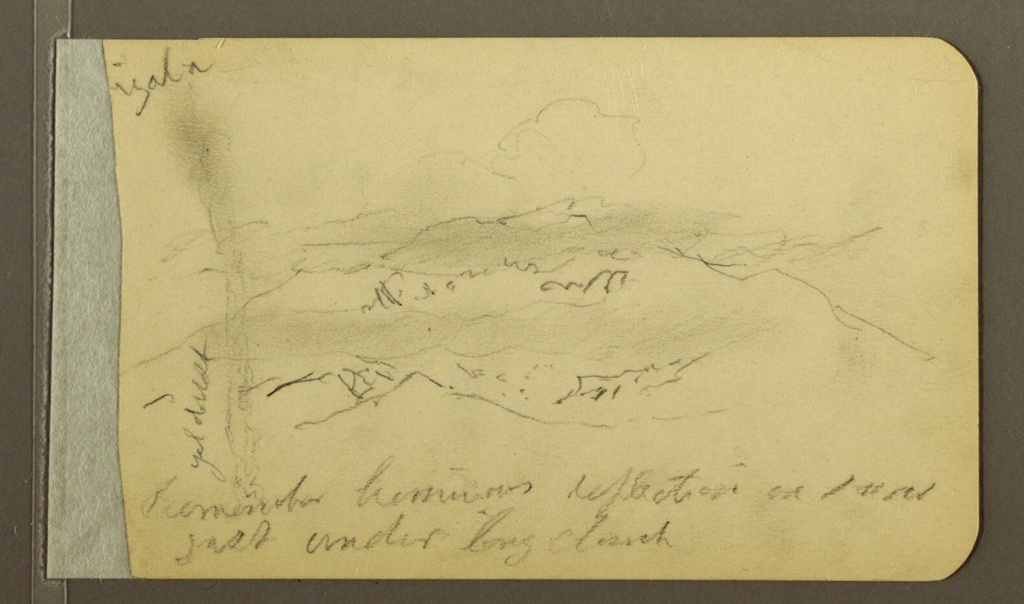 yel dust
Remember luminous reflection on snow
just under long cloud